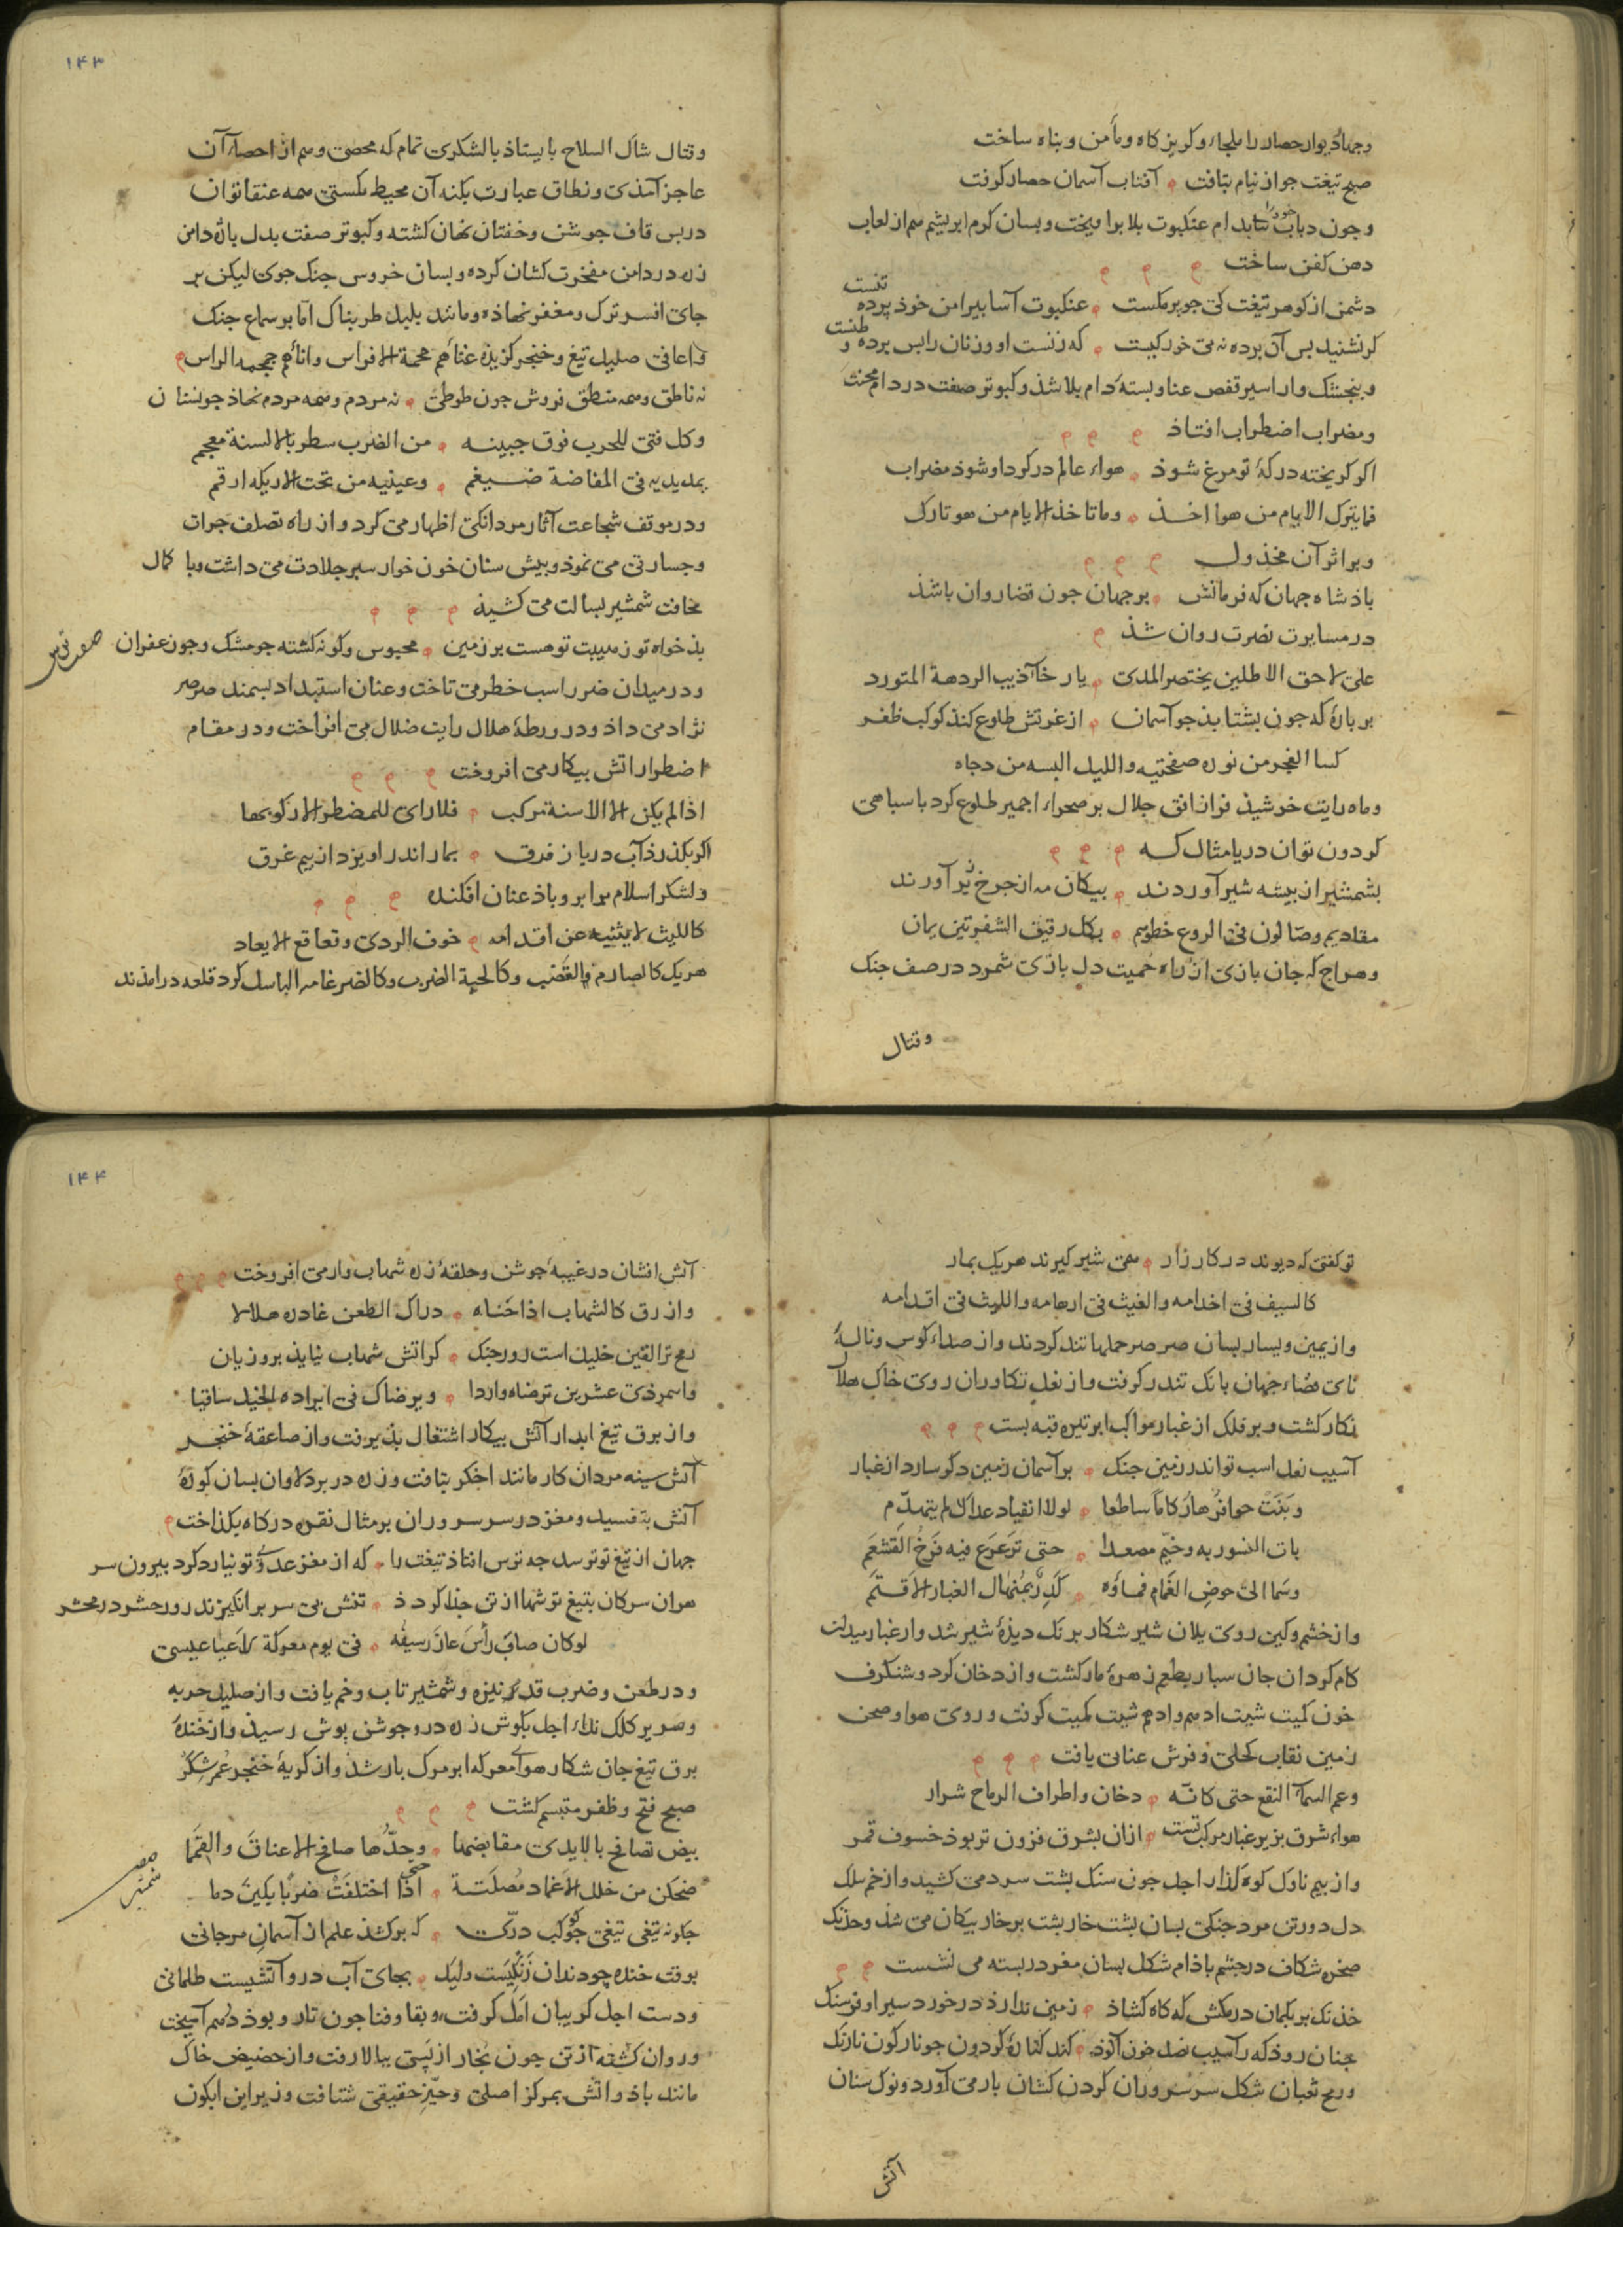 وجهار دیوار حصار را ملجاء و کریز کاه و مأمن و پناه ساخت
صبح تیغت جو از نیام بتافت آفتاب آسمان حصار کرفت
عنکبوت بلا براویخت وبسان کرم ابریشم هم از لعاب
دهن کفن ساخت
دشمن از کوهر تیغت کی جو بر مکست عنکبوت آسا بیرامن خوذ برده تنست
و بنجشک وار اسیر قفص عنا و بستهٔ دام بلا شذ و کبوتر صفت در دام محنت
ومضراب اضطراب افتاذ
اکر کریخته در کهٔ تو مرغ شوذ هواء عالم در کرد او شوذ مضراب
فما یترک الایام من هو اخذ وما تاخذ الایام من هو تارک
وبر اثر آن مخذول
باذشاه جهان که فرمانش بر جهان جون قضا روان باشذ
در مسایرت نصرت روان شذ
بر بارهٔ که جون بشتابذ جو آسمان از غرتش طلوع کنذ کوکب ظفر
کسا الفجر من نوره صفحتیه واللیل البسه من دجاه
وماه رایت خرشیذ فر از افق جلال بر صحراء اجمیر طلوع کرد با سباهی
کردون توان دریا مثال که
بشمشیر از بیشه شیر آوردند بیکان مه از جرخ زیر آورند
مقادیم وصالون فی الروع خطوهم بکل رقیق الشفرتین یمان
وهر اج که جان بازی از راه حمیت دل بازی شمرد در صف جنک
وقتال
۱۴۳
وقتال شاک السلاح بایستاذ با لشکری تمام که محصی وهم از احصاء آن
عاجز آمذی ونطاق عبارت بکنه آن محیط نکستی همه عنقا توان
در بس قاف جوشن وخفتان نهان کشته وکبوتر صفت بدل باره دامن
زره در دامن مفخرت کشان کرده وبسان خروس جنک جوی لیکن بر
جای افسر ترک ومغفر نهاذه ومانند بلبل طربناک اما بر سماع جنک
واغانی صلیل تیغ وخنجر کزیده غناهم حمحمة الافراس واناهم جمجمة الراس
نه ناطق وهمه منطق فروش جون طوطی نه مردم وهمه مردم نهاذ جو نسناس
وکل فتی للحرب فوق جبینه من الضرب سطر بالاسنة معجم
یمد یدیه فی المفاضة ضیغم وعینیه من تحت التریکة ارقم
ودر موقف شجاعت آثار مردانکی اظهار می کرد واز راه تصلف جرات
وجسارتی می نموذ وبیش سنان خون خوار سبر جلادت می داشت وبا کمال
مخافت شمشیر بسالت می کشیذ
بذ خواه تو ز هیبت تو هست بر زمین محبوس وکونه کشته جو مشک وجو زعفران
ودر میدان ضرر اسب خطر می تاخت وعنان استبداد بسمند صرصر
نژاد می داذ ودر ورطهٔ هلال رایت ضلال می افراخت ودر مقام
اضطرار اتش بیکار می افروخت
اذا لم یکن الا الاسنة مرکب فلا رای للمضطر الا رکوبها
اکر بکذرذ آب دریا ز فرق بمار اندر اویزد از بیم غرق
ولشکر اسلام برابر وباذ عنان افکنده
کاللیث لا یثنیه عن اقدامه خوف الردی وقعاقع الایعاد
هریک کالصارم القضب وکالحیة الضرب وکالضرغامه الباسل کرد قلعه درامذند
تو کفتی که دیوند در کارزار همی شیر کیرند هریک بمار
کالسیف فی اخذامه والغیث فی ارهامه واللیث فی اقدامه
واز یمین ویسار بسان صرصر حملها تند کردند واز صداء کوس ونالهٔ
نای فضاء جهان بانک تندر کرفت واز نعل تکاوران روی خاک هلال
نکار کشت وبر فلک از غبار مواکب ابر تیره قبه بست
آسیب نعل اسب تو اندر زمین جنک بر آسمان زمین دکر سازد از غبار
وبنت حوافرها رکاما ساطعا لولا انقیاد عداک لم یتهدم
بات النسور به وخیم مصعدا حتی ترعرع فیه فرخ القشعم
وسما الی حوض الغمام فماؤه کدر بمنهال الغبار الاقتم
واز خشم وکین روی یلان شیر شکار برنک دیذهٔ شیر شد واز غبار میدان
کام کردان جان سبار بطعم زهرهٔ مار کشت واز دخان کرد وشنکرف
خون کمیت شیت ادهم وادهم شیت کمیت کرفت وروی هوا وصحن
زمین نقاب کحلی وفرش عنابی یافت
وعم السماء النقع حتی کانه دخان واطراف الرماح شرار
هواء شرق بزیر غبار مرکب تست ازان بشرق فزون تر بوذ خسوف قمر
واز بیم ناوک کوه کذار اجل جون سنک بشت سرد می کشید واز خم ملک
دل دوز تن مرد جنکی بسان بشت خار بشت بر خار بیکان می شذ وخذنک
صخره شکاف در جشم باذام شکل بسان مغز در بسته می نشست
خذنک بر یکمان در مکش که کاه کشاذ زمین ندارذ در خورد سیر او فرسنک
ورمح ثعبان شکل سر سروران کردن کشان بار می آورد ونوک سنان
آتش
۱۴۴
آتش افشان در غیبهٔ جوشن وحلقهٔ زره شهاب وار می افروخت
وازرق کالشهاب اذا حناه دراک الطعن غادره هلالا
رمح ترا لقین خلیل است روز جنک کز اتش شهاب نیایذ برو زیان
واز برق تیغ ابدار آتش بیکار اشتغال بذیرفت واز صاعقهٔ خنجر
آتش سینه مردان کار مانند اخکر بتافت وزره در بر دلاوران بسان کورهٔ
آتش بتفسید ومغز در سر سروران بر مثال نقره در کاه بکذاخت
جهان از تیغ تو ترسد جه ترس افتاذ تیغت را که از مغز عدو تو نیارد کرد بیرون سر
هران سرکان بتیغ تو شها از تن جذا کردذ تنش بی سر برانکیزند روز حشر در محشر
لو کان صادف رأس عازر سیفه فی یوم معرکة لاعیا عیسی
ودر طعن وضرب قد نیزه وشمشیر تاب وخم یافت واز صلیل حربه
وصریر کلک نداء اجل بکوش زره در وجوشن بوش رسیذ واز خندهٔ
برق تیغ جان شکار هوای معرکه ابر مرک بار شذ واز کریهٔ خنجر عمر شکر
صبح فتح وظفر متبسم کشت
بیض تصافح بالایدی مقابضها وحدها صافح الاعناق والقمما
ضحکن من خلل الاغماد مصلتة حتی اذا اختلفت ضربا بکین دما
که برکشذ علم از آسمان مرجانی
بوقت خنده جو دندان زنکیست ولیک بجای آب درو آتشیست طلمانی
ودست اجل کریبان امل کرفت وبقا وفنا جون تار وبوذ درهم آمیخت
وروان کشته از تن جون بخار از بستی ببالا رفت واز حضیض خاک
مانند باذ واتش بمرکز اصلی وحیز حقیقی شتافت وزیر این ابکون